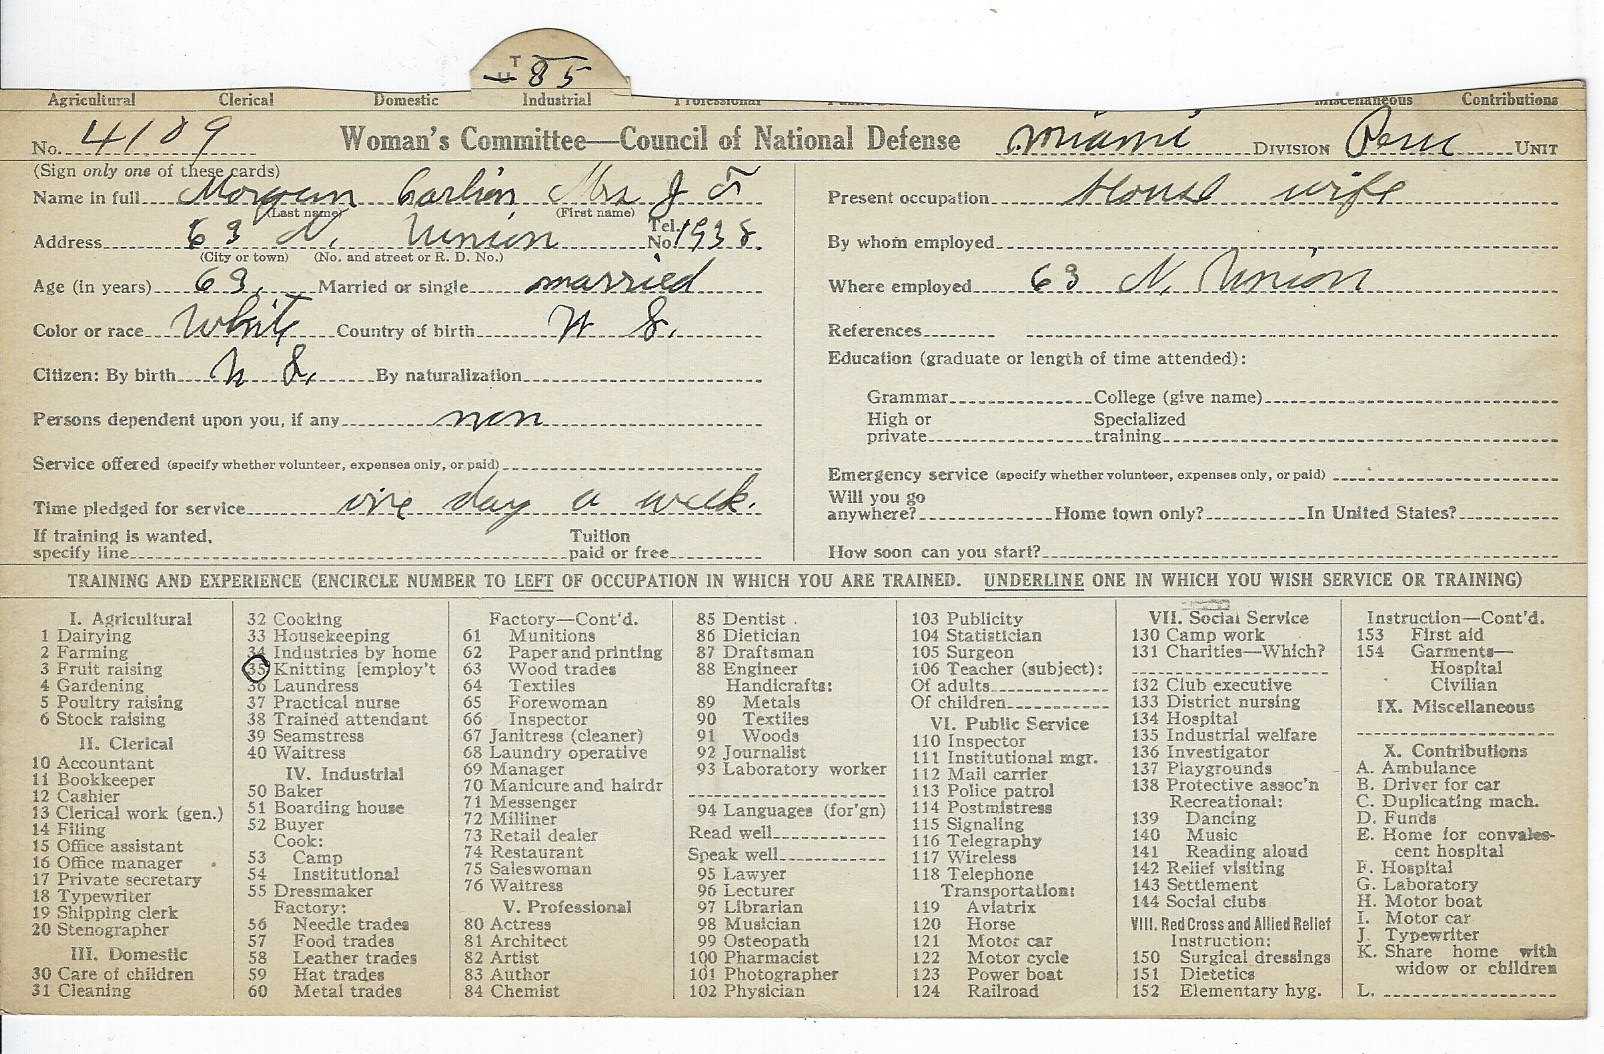 T
85
Agricultural Clerical Domestic Industrial Professional Miscellaneous Contributions
No. 4109 Woman's Committee—Council of National Defense Miami DIVISION Peru UNIT
(Sign only one of these cards)
Name in full Morgan Carlin Mrs J T
(Last name) (First name)
Address 63 N. Union Tel. No. 1938.
(City or town) (No. and street or R. D. No.)
Age (in years) 63. Married or single married
Color or race White Country of birth U S.
Citizen: By birth U S. By naturalization
Persons dependent upon you, if any non
Service offered (specify whether volunteer, expenses only, or paid)
Time pledged for service one day a week.
If training is wanted, specify line Tuition paid or free
Present occupation House wife
By whom employed
Where employed 63 N. Union
References
Education (graduate or length of time attended):
Grammar College (give name)
High or private Specialized training
Emergency service (specify whether volunteer, expenses only, or paid)
Will you go anywhere? Home town only? In United States?
How soon can you start?
TRAINING AND EXPERIENCE (ENCIRCLE NUMBER TO LEFT OF OCCUPATION IN WHICH YOU ARE TRAINED. UNDERLINE ONE IN WHICH YOU WISH SERVICE OR TRAINING)
I. Agricultural
1 Dairying
2 Farming
3 Fruit raising
4 Gardening
5 Poultry raising
6 Stock raising
II. Clerical
10 Accountant
11 Bookkeeper
12 Cashier
13 Clerical work (gen.)
14 Filing
15 Office assistant
16 Office manager
17 Private secretary
18 Typewriter
19 Shipping clerk
20 Stenographer
III. Domestic
30 Care of children
31 Cleaning
32 Cooking
33 Housekeeping
34 Industries by home
35 Knitting [employ't
36 Laundress
37 Practical nurse
38 Trained attendant
39 Seamstress
40 Waitress
IV. Industrial
50 Baker
51 Boarding house
52 Buyer
Cook:
53 Camp
54 Institutional
55 Dressmaker
Factory:
56 Needle trades
57 Food trades
58 Leather trades
59 Hat trades
60 Metal trades
Factory—Cont'd.
61 Munitions
62 Paper and printing
63 Wood trades
64 Textiles
65 Forewoman
66 Inspector
67 Janitress (cleaner)
68 Laundry operative
69 Manager
70 Manicure and hairdr
71 Messenger
72 Milliner
73 Retail dealer
74 Restaurant
75 Saleswoman
76 Waitress
V. Professional
80 Actress
81 Architect
82 Artist
83 Author
84 Chemist
85 Dentist
86 Dietician
87 Draftsman
88 Engineer
Handicrafts:
89 Metals
90 Textiles
91 Woods
92 Journalist
93 Laboratory worker
94 Languages (for'gn)
Read well
Speak well
95 Lawyer
96 Lecturer
97 Librarian
98 Musician
99 Osteopath
100 Pharmacist
101 Photographer
102 Physician
103 Publicity
104 Statistician
105 Surgeon
106 Teacher (subject):
Of adults
Of children
VI. Public Service
110 Inspector
111 Institutional mgr.
112 Mail carrier
113 Police patrol
114 Postmistress
115 Signaling
116 Telegraphy
117 Wireless
118 Telephone
Transportation:
119 Aviatrix
120 Horse
121 Motor car
122 Motor cycle
123 Power boat
124 Railroad
VII. Social Service
130 Camp work
131 Charities—Which?
132 Club executive
133 District nursing
134 Hospital
135 Industrial welfare
136 Investigator
137 Playgrounds
138 Protective assoc'n
Recreational:
139 Dancing
140 Music
141 Reading aloud
142 Relief visiting
143 Settlement
144 Social clubs
VIII. Red Cross and Allied Relief
Instruction:
150 Surgical dressings
151 Dietetics
152 Elementary hyg.
Instruction—Cont'd.
153 First aid
154 Garments—
Hospital
Civilian
IX. Miscellaneous
X. Contributions
A. Ambulance
B. Driver for car
C. Duplicating mach.
D. Funds
E. Home for convales-
cent hospital
F. Hospital
G. Laboratory
H. Motor boat
I. Motor car
J. Typewriter
K. Share home with
widow or children
L.